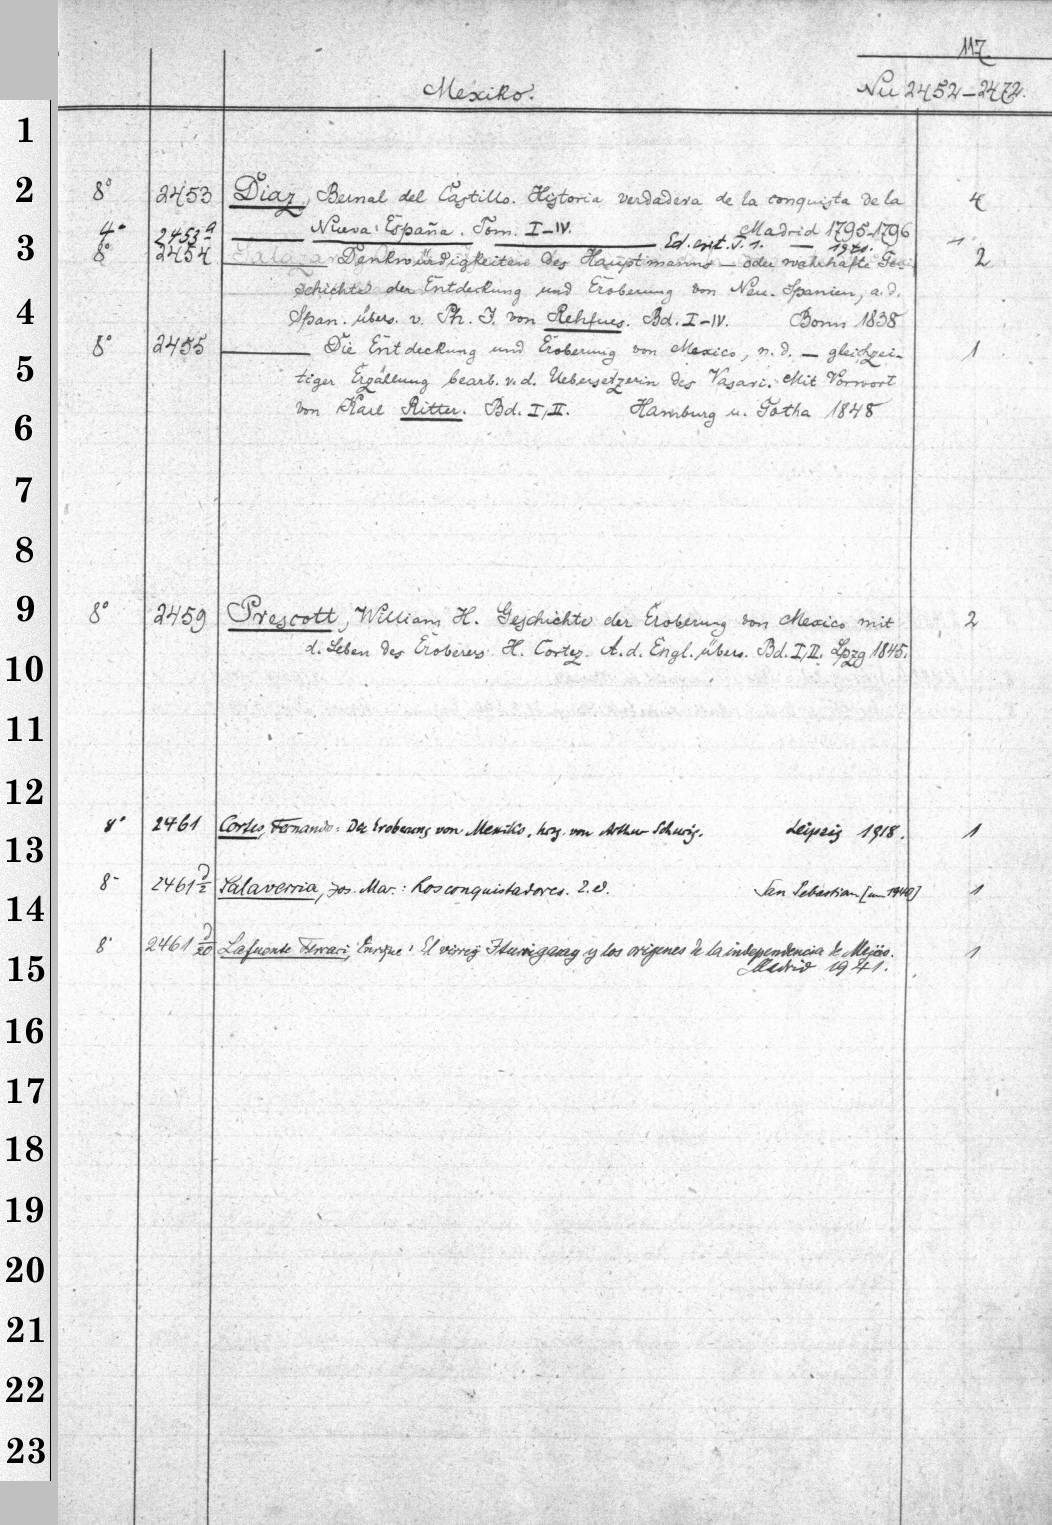 117
Mexiko.
Nu 2452-2472.
1
2
8° 2453 Diaz, Bernal del Castillo. Historia verdadera de la conquista de la 4
Nueva España. Tom. I-IV. Madrid 1795-1796
4° 2453a Ed. crit. T. 1. — 1
3
8° 2454 Denkwürdigkeiten des Hauptmanns — oder wahrhafte Ge- 2
schichte der Entdeckung und Eroberung von Neu-Spanien, a. d.
4
Span. übers. v. Ph. J. von Rehfues. Bd. I-IV. Bonn 1838
8° 2455 Die Entdeckung und Eroberung von Mexico, n. d. — gleichzei- 1
5
tiger Erzählung bearb. v. d. Uebersetzerin des Vasari. Mit Vorwort
von Karl Ritter. Bd. I, II. Hamburg u. Gotha 1848
6
7
8
9
8° 2459 Prescott, William H. Geschichte der Eroberung von Mexico mit 2
d. Leben des Eroberers H. Cortez. A. d. Engl. übers. Bd. I, II. Lpzg 1845.
10
11
12
8° 2461 Cortes, Fernando: Die Eroberung von Mexiko, hrsg. von Arthur Schurig. Leipzig 1918. 1
13
8° 2461 Salaverria, Jos. Mar.: Los conquistadores. 2. ed. San Sebastian [um 1940] 1
14
8° 2461 Lafuente Ferrari, Enrique: El virrey Iturrigaray y los origenes de la independencia de Mejico. 1
15
Madrid 1941.
16
17
18
19
20
21
22
23